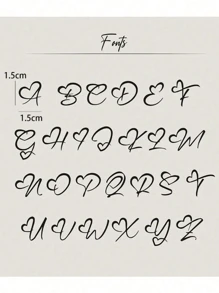 Fonts
1.5cm
A B C D E F
1.5cm
G H I J K L M
N O P Q R S T
U V W X Y Z